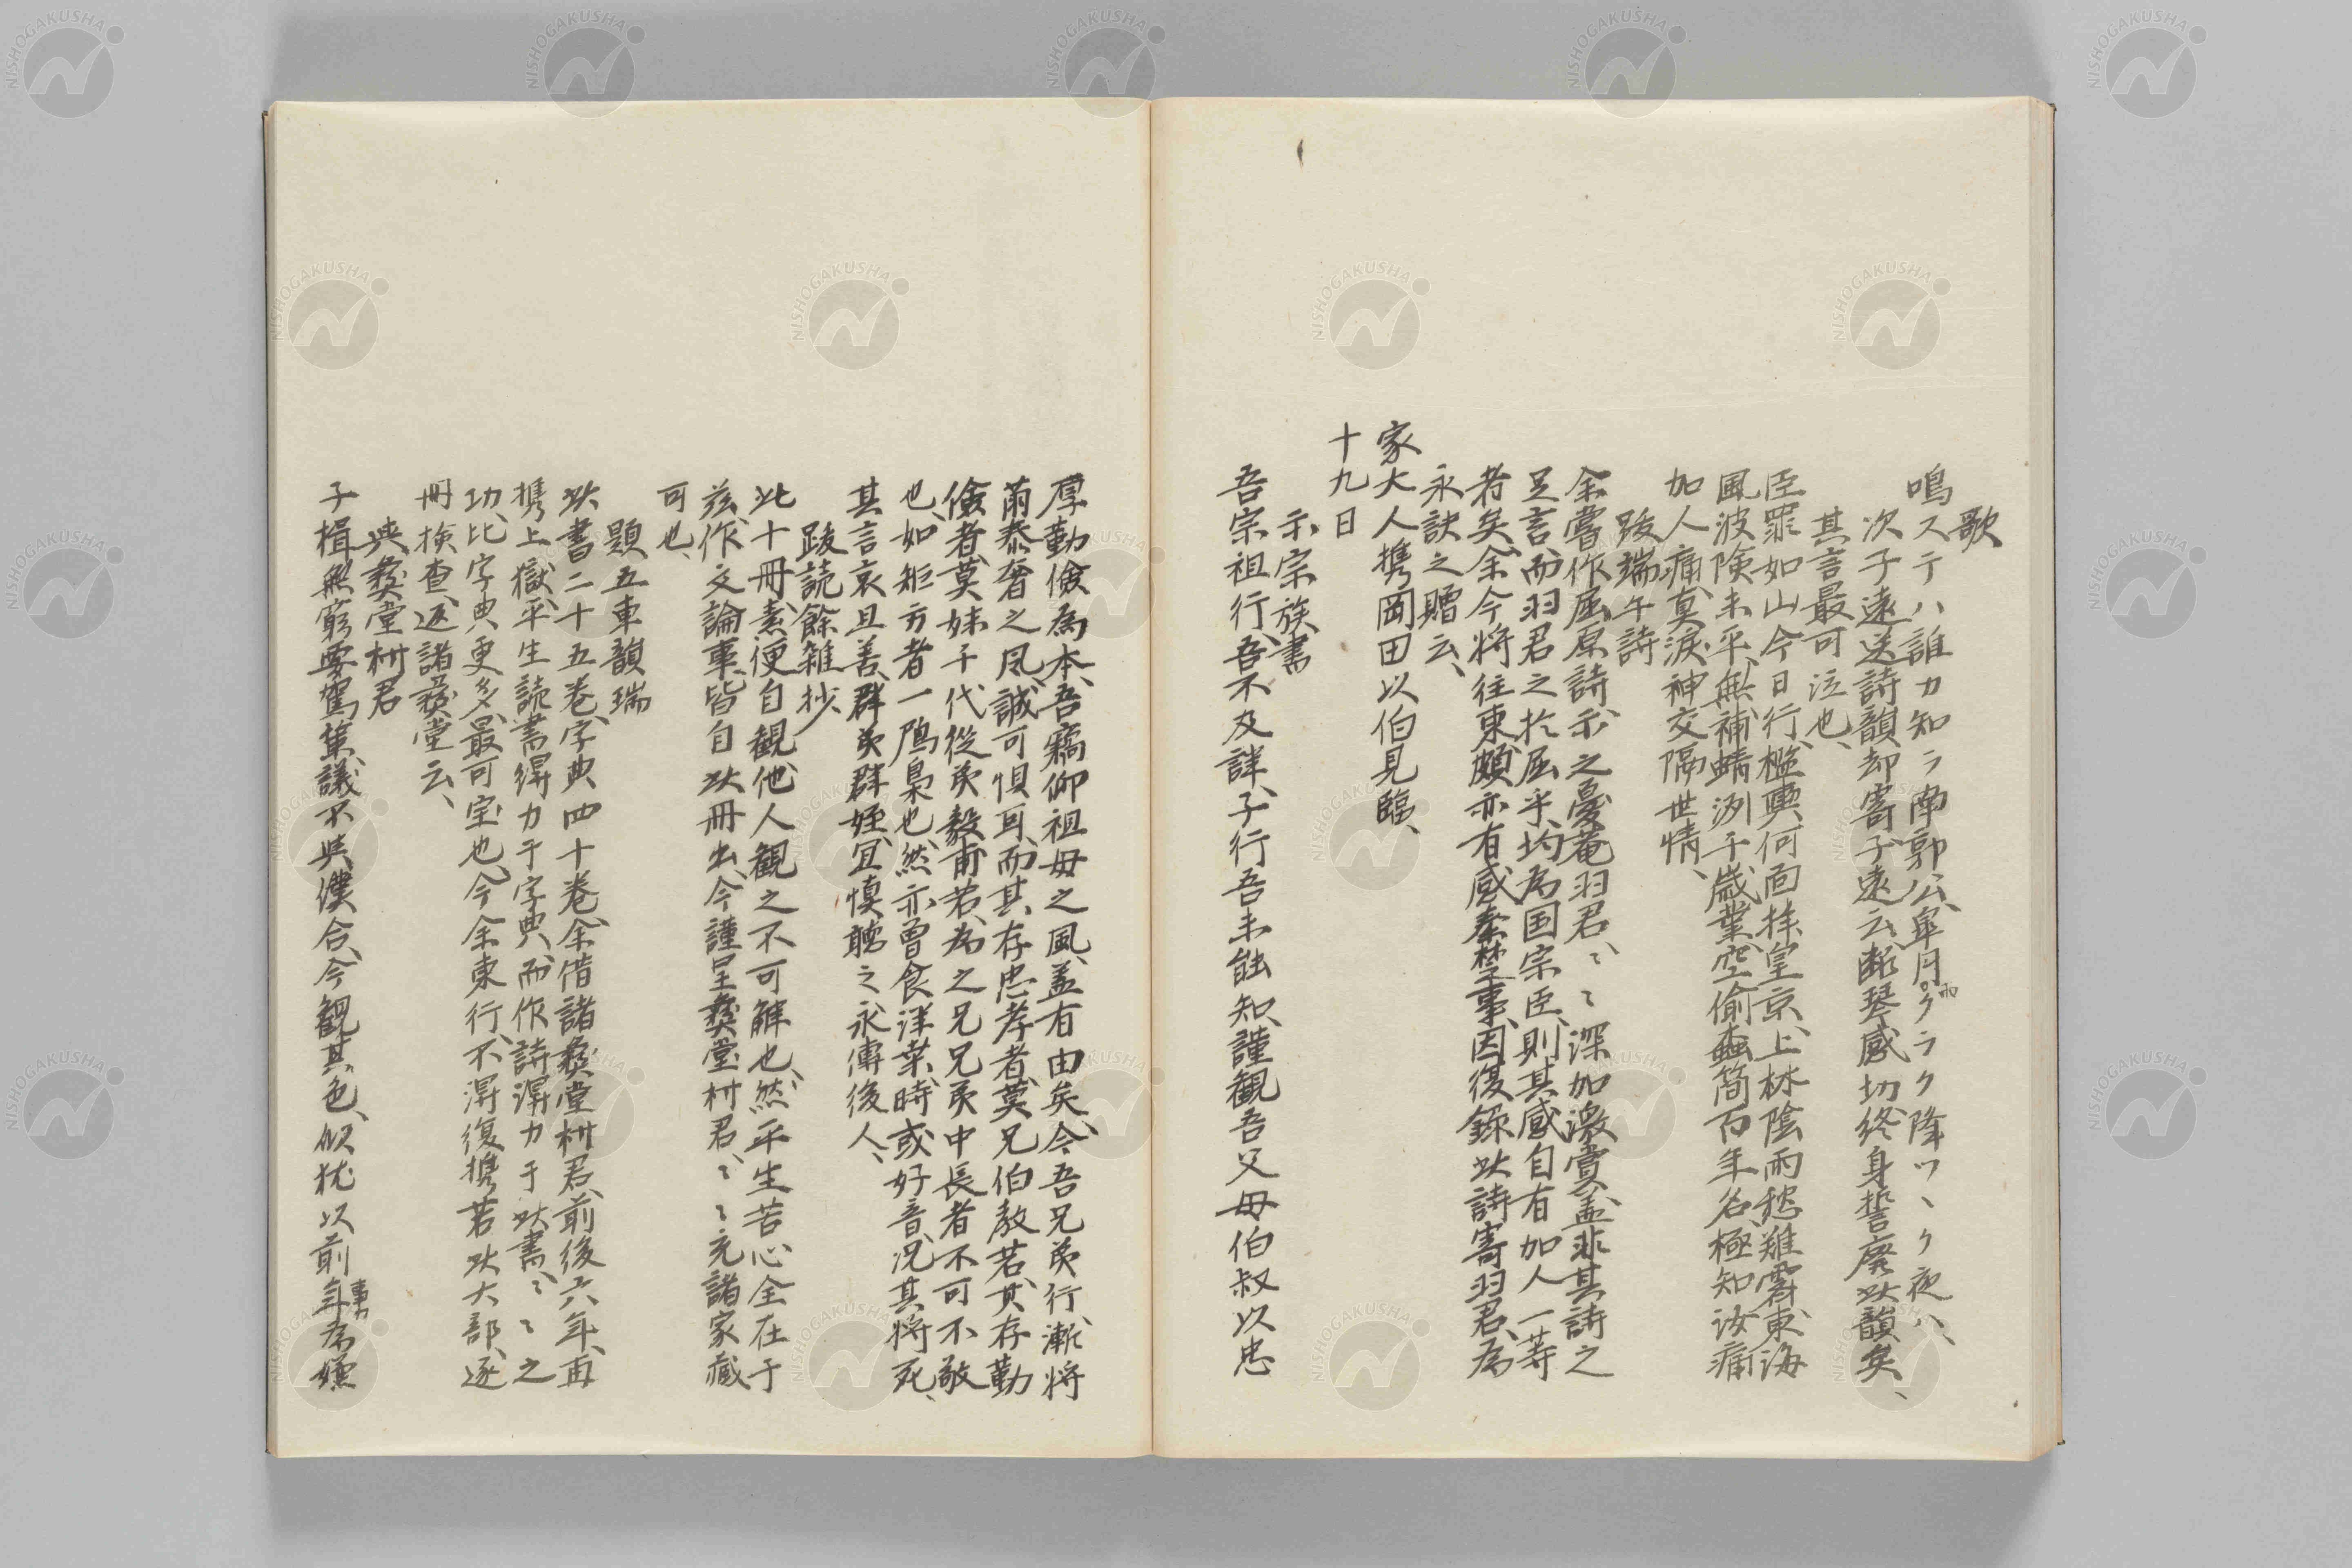 歌
鳴ステハ誰カ知ラ南郭公、皐月雨クラク降ツヽク夜ハ、
次子遠送詩韻却寄子遠云、断琴感切終身誓廃此韻矣、
其言最可泣也、
臣罪如山今日行、檻輿何面拝皇京、上林陰雨愁難霽、東海
風波険未平、無補蜻洌千歳業、空偷蠧簡百年名、極知汝痛
加人痛、真涙神交隔世情、
跋端午詩
余嘗作屈原詩示之憂菴羽君、〻〻深加激賞、蓋非其詩之
足言、而羽君之於屈乎、均為国宗臣、則其感自有加人一等
者矣、余今将往東、頗亦有感秦楚事、因復録此詩寄羽君、為
永訣之贈云、
家大人携岡田以伯見臨、
十九日
示宗族書
吾宗祖行、吾不及詳、子行吾未能知、謹観吾父母伯叔以忠
厚勤倹為本、吾窃仰祖母之風、蓋有由矣、今吾兄弟行、漸将
萠泰奢之風、誠可惧耳、而其存忠孝者、莫兄伯教若、其存勤
倹者、莫妹千代從弟毅甫若、為之兄兄弟中長者不可不敬
也、如矩方者一鴟梟也、然亦曽食洋葉、時或好音、况其将死、
其言哀且善、群弟群姪、宜慎聴之、永傳後人、
跋読餘雑抄
此十冊、素便自観、他人観之不可解也、然平生苦心全在于
茲、作文論事、皆自此冊出、今謹呈彜堂村君、〻〻充諸家蔵
可也、
題五車韻瑞
此書二十五巻、字典四十巻、余借諸彜堂村君、前後六年、再
携上獄、平生読書得力于字典、而作詩得力于此書、〻〻之
功、比字典更多、最可宝也、今余東行、不得復携若此大部、逐
冊検査、返諸彜堂云、
与彜堂村君
子楫無窮要駕策、議不与僕合、今観其色、似猶以前年事為嫌